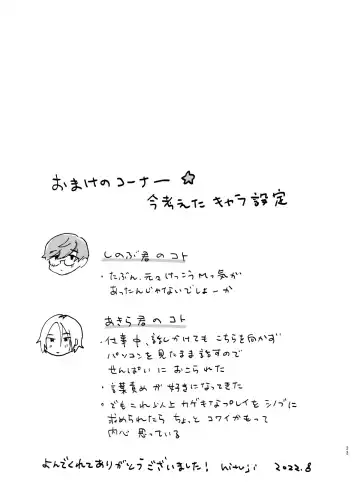 おまけのコーナー☆
今考えた キャラ設定
しのぶ君のコト
・たぶん、元々けっこうMっ気が
あったんじゃないでしょーか
あきら君のコト
・仕事中、話しかけても こちらを向かず
パソコンを見たまま話すので
せんぱいに おこられた
・言葉責めが好きになってきた
・でもこれ以上 カゲキなプレイを シノブに
求められたら ちょっと コワイかもって
内心 思っている
よんでくれてありがとうございました! hituji 2022.8